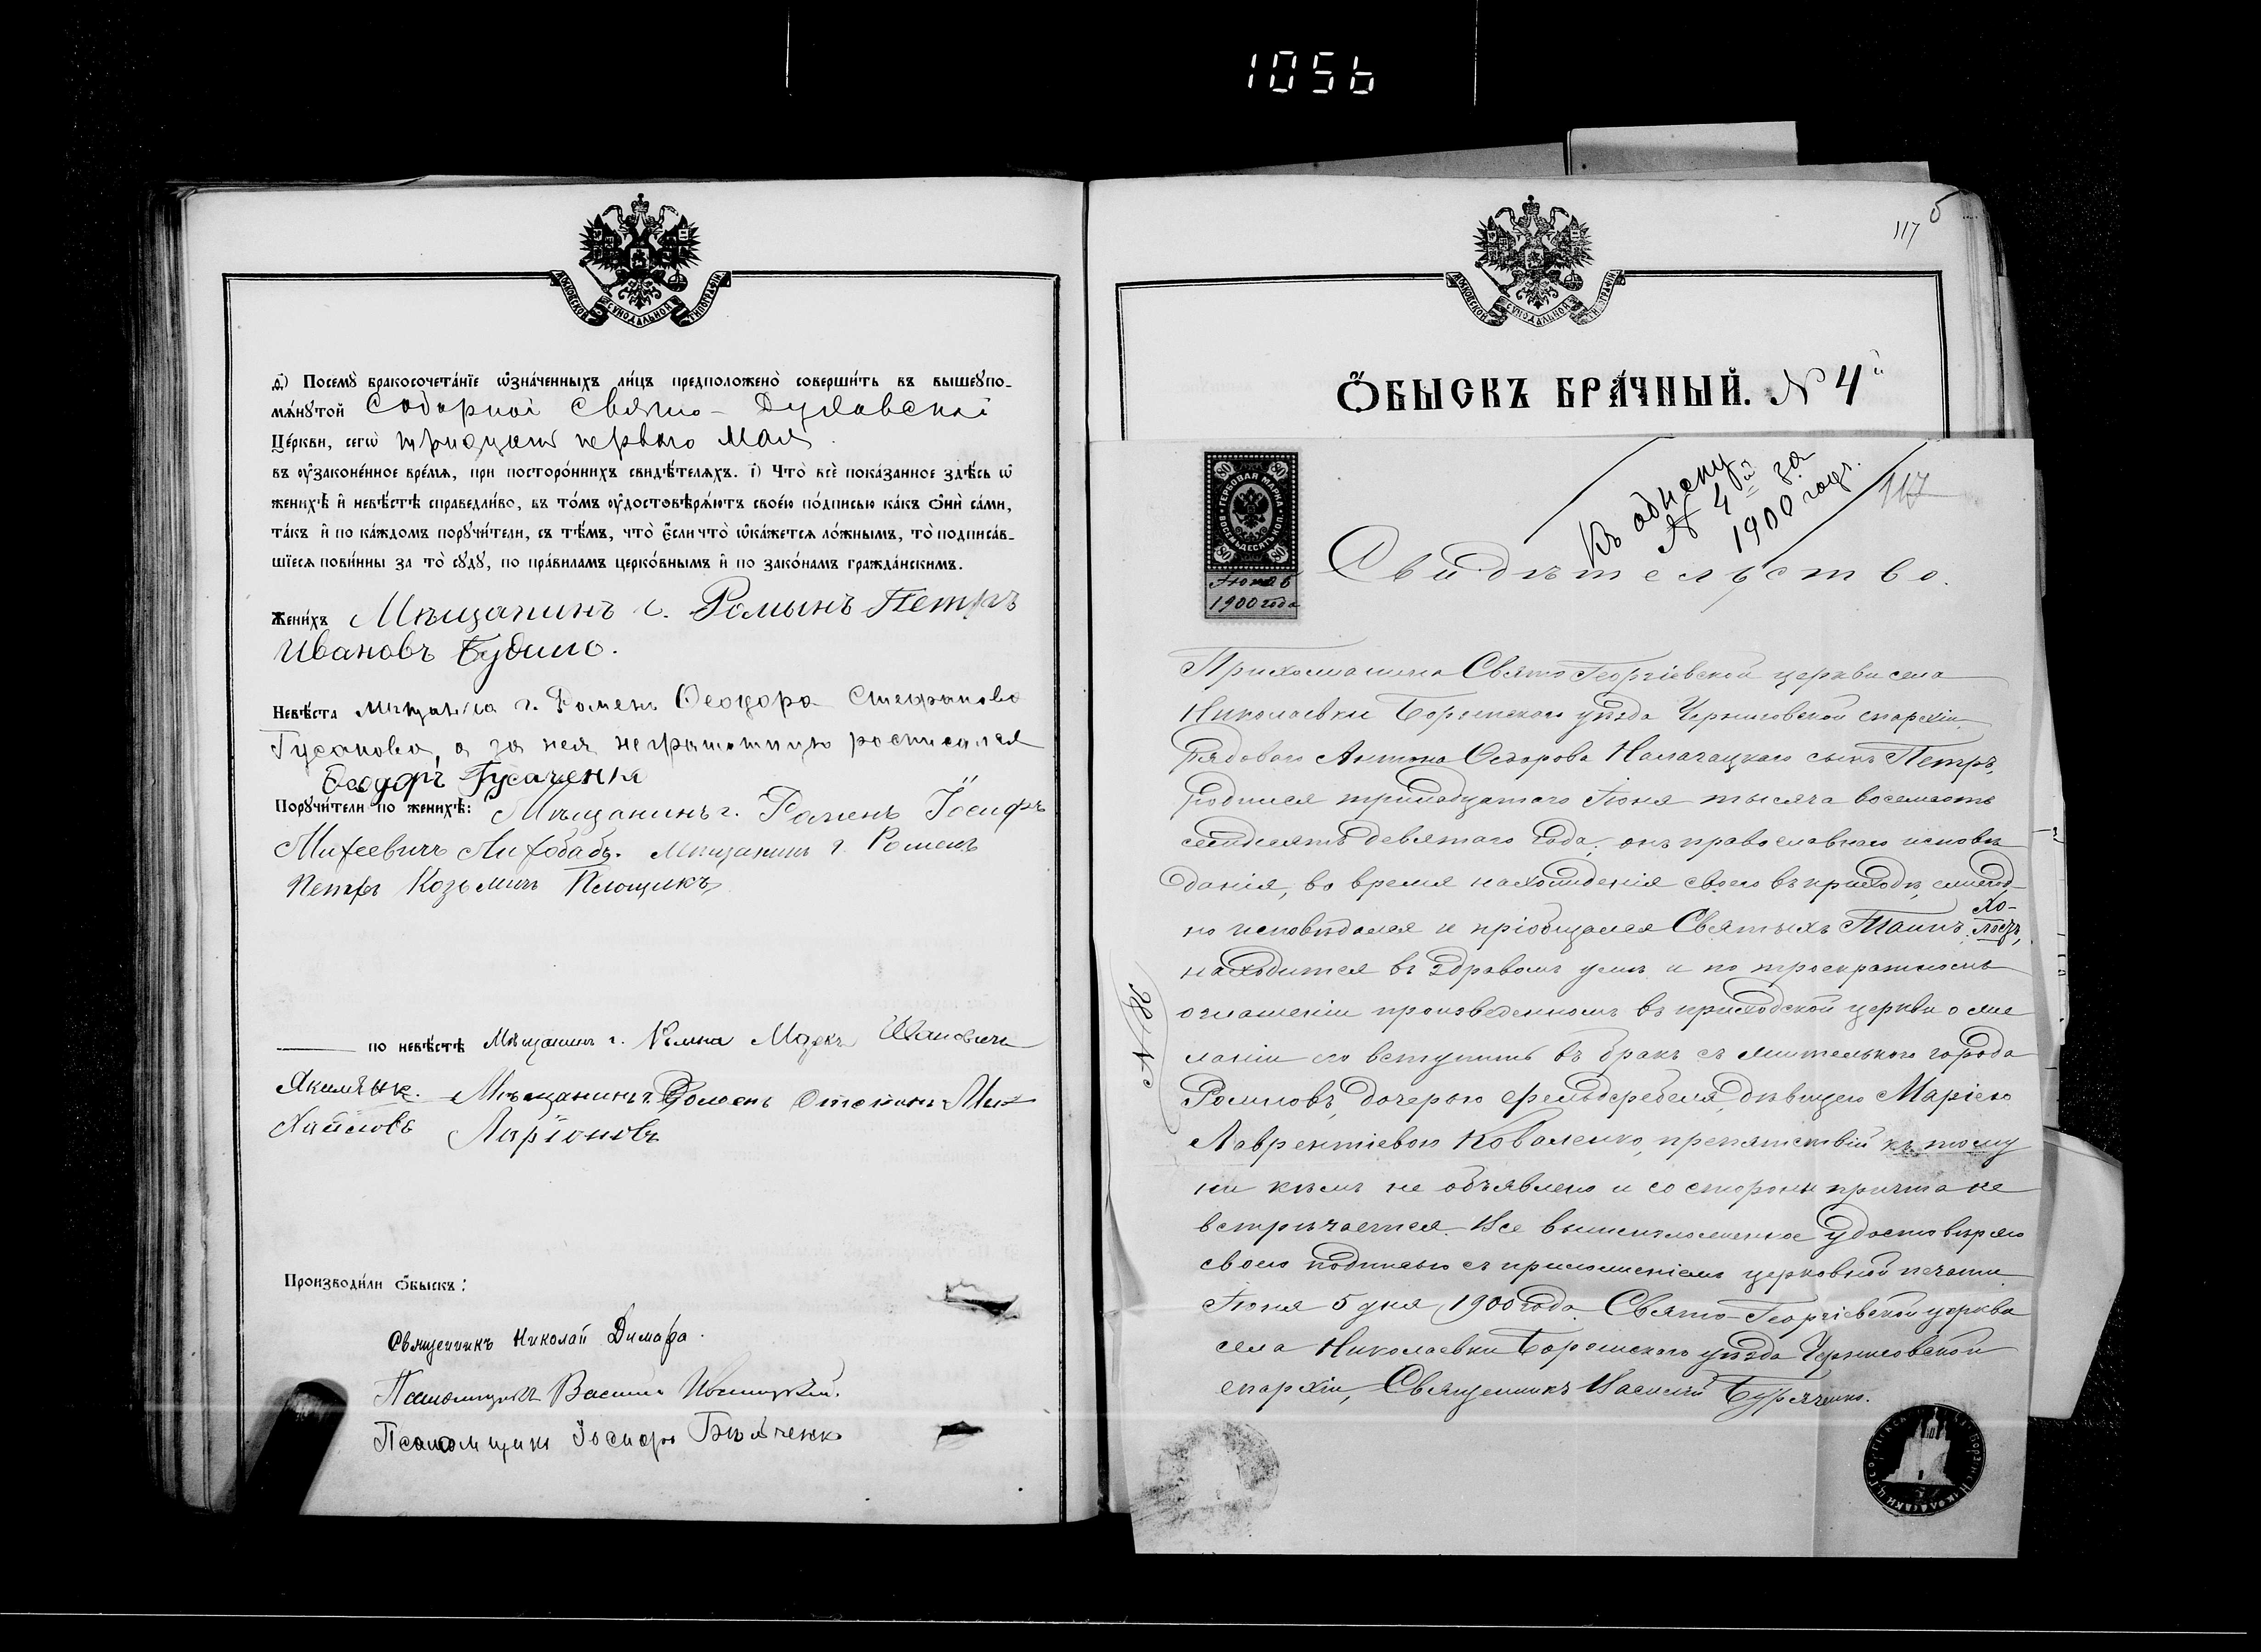 1056
МОСКОВСКОЙ СѴНОДАЛЬНОЙ ТИПОГРАФІИ
д҃) Посемꙋ̀ бракосочета́нїе ѡ҆зна́ченныхъ ли́цъ предположено̀ соверши́ть въ вышеꙋпо-
мѧ́нꙋтой Соборной Свято-Духовской
Це́ркви, сегѡ̀ тридцать перваго Мая.
въ ᲂу҆законе́нное вре́мѧ, при посторо́ннихъ свидѣ́телѧхъ. і҃) Что̀ всѐ пока́занное здѣ́сь ѡ҆
женихѣ̀ и҆ невѣ́стѣ справедли́во, въ то́мъ ᲂу҆достовѣрѧ́ютъ свое́ю по́дписью ка́къ ѻ҆нѝ са́ми,
та́къ и҆ по ка́ждомъ порꙋчи́тели, съ тѣ́мъ, что̀ є҆́сли что̀ ѡ҆ка́жетсѧ ло́жнымъ, то̀ подписа́в-
шїесѧ пови́нны за то̀ сꙋдꙋ̀, по пра́виламъ церко́внымъ и҆ по зако́намъ гражда́нскимъ.
Жени́хъ Мѣщанинъ г. Ромынъ Петръ
Ивановъ Будило.
Невѣ́ста мѣщанка г. Роменъ Ѳеодора Стефанова
Гусакова, а за нея неграмотную росписался
Ѳеодоръ Гусаченко
Порꙋчи́тели по женихѣ̀: Мѣщанинъ г. Роменъ Іосифъ
Михеевичъ Лихобабъ. Мѣщанинъ г. Роменъ
Петръ Козьмичъ
по невѣ́стѣ Мѣщанинъ г. Ромна Маркъ Ивановичъ
Якименк. Мѣщанинъ г. Роменъ Степанъ Ми-
хайловъ Ларіоновъ
Производи́ли ѻ҆́быскъ:
Священникъ Николай Димара.
Псаломщикъ Василій
Псаломщикъ Іосифъ Бѣльченко
117
МОСКОВСКОЙ СѴНОДАЛЬНОЙ ТИПОГРАФІИ
Ѻ҆́БЫСКЪ БРА́ЧНЫЙ. № 4й
ГЕРБОВАЯ МАРКА
ВОСЕМЬДЕСЯТЪ КОП.
80 80 80 80
Іюня 5
1900 года
Къ обыску
№ 4й за
1900 годъ.
117
Свидѣтельство.
Прихожанина Свято-Георгіевской церкви села
Николаевки Борзенскаго уѣзда Черниговской епархіи
рядоваго Антона Ѳедорова Малачацкаго сынъ Петръ,
родился тринадцатаго Іюня тысяча восемьсотъ
семьдесятъ девятаго года, онъ православнаго исповѣ
данія, во время нахожденія своего въ приходѣ, ежегод-
но исповѣдался и пріобщался Святыхъ Таинъ, хо-
лостъ,
находится въ здравомъ умѣ и по троекратномъ
оглашеніи произведенномъ въ приходской церкви о же
ланіи его вступить въ бракъ съ жительного города
Роменъ, дочерью фельдфебеля, дѣвицею Маріею
Лаврентіевою Коваленко, препятствій къ тому
ни кѣмъ не объявлено и со стороны причта не
встрѣчается. Все вышеизложенное удостовѣряю
своею подписью съ приложеніемъ церковной печати.
Іюня 5 дня 1900 года. Свято-Георгіевской церкви
села Николаевки Борзенскаго уѣзда Черниговской
епархіи, Священникъ Василій Буряченко.
№ 86